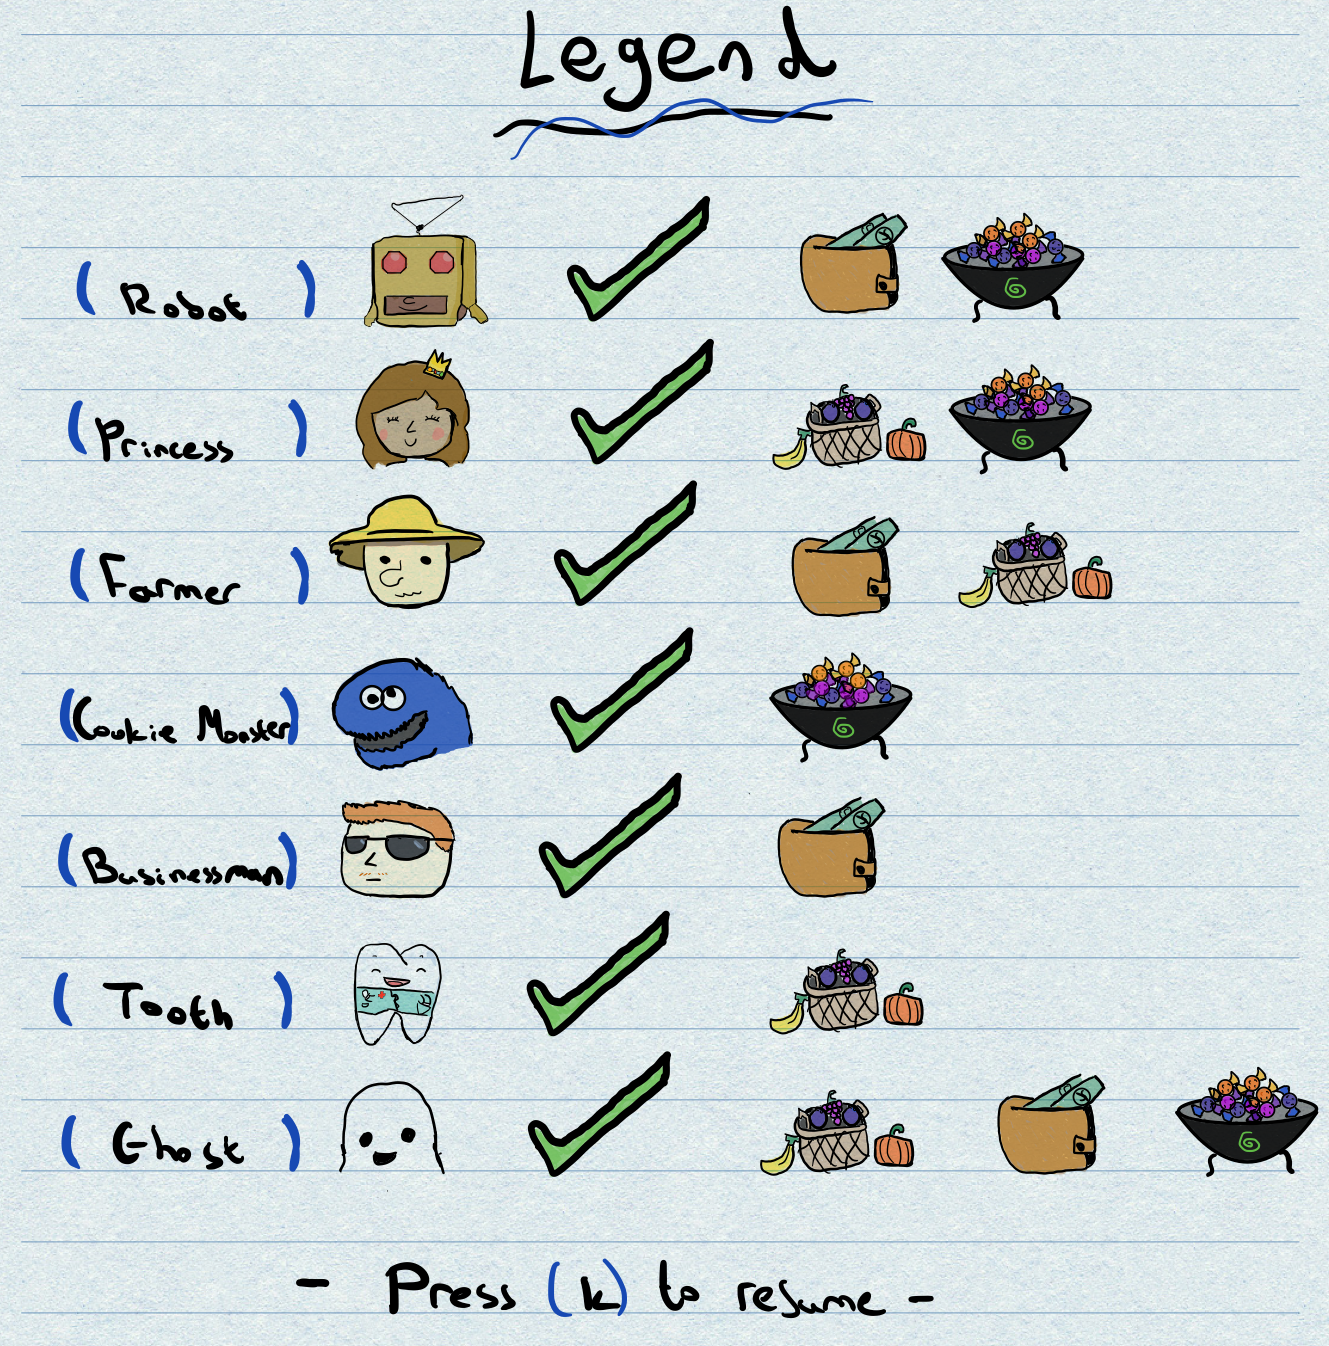 Legend
( Robot )
( Princess )
( Farmer )
(Cookie Monster)
(Businessman)
( Tooth )
( Ghost )
- Press (k) to resume -